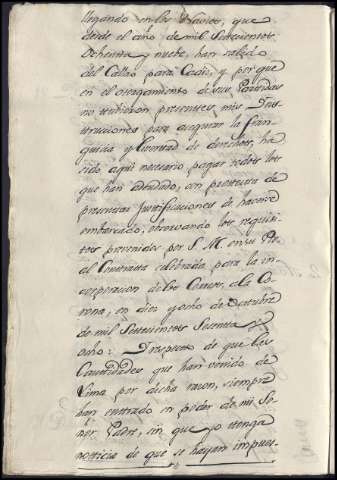 llegando en los Navios, que
desde el año de mil Setecientos
Ochenta y nueve, han salido
del Callao para Cadiz, y por que
en el otorgamiento de sus Partidas
no tubieron presentes mis Ins-
trucciones para asegurar la fran-
quicia y livertad de derechos, ha
sido aqui necesario pagar todos los
que han adeudado, con protexta de
presentar Justificaciones de haverse
embarcado, observando los requisi-
tos prevenidos por S. M. en su Re-
al Contrata celebrada para la in-
corporacion de los Correos, a la Co-
rona, en diez y ocho de Octubre
de mil Setecientos Sesenta y
ocho: Respecto de que las
Cantidades que han venido de
Lima por dicha razon, siempre
han entrado en poder de mi Se-
ñor Padre, sin que yo tenga
noticia de que se hayan impues-